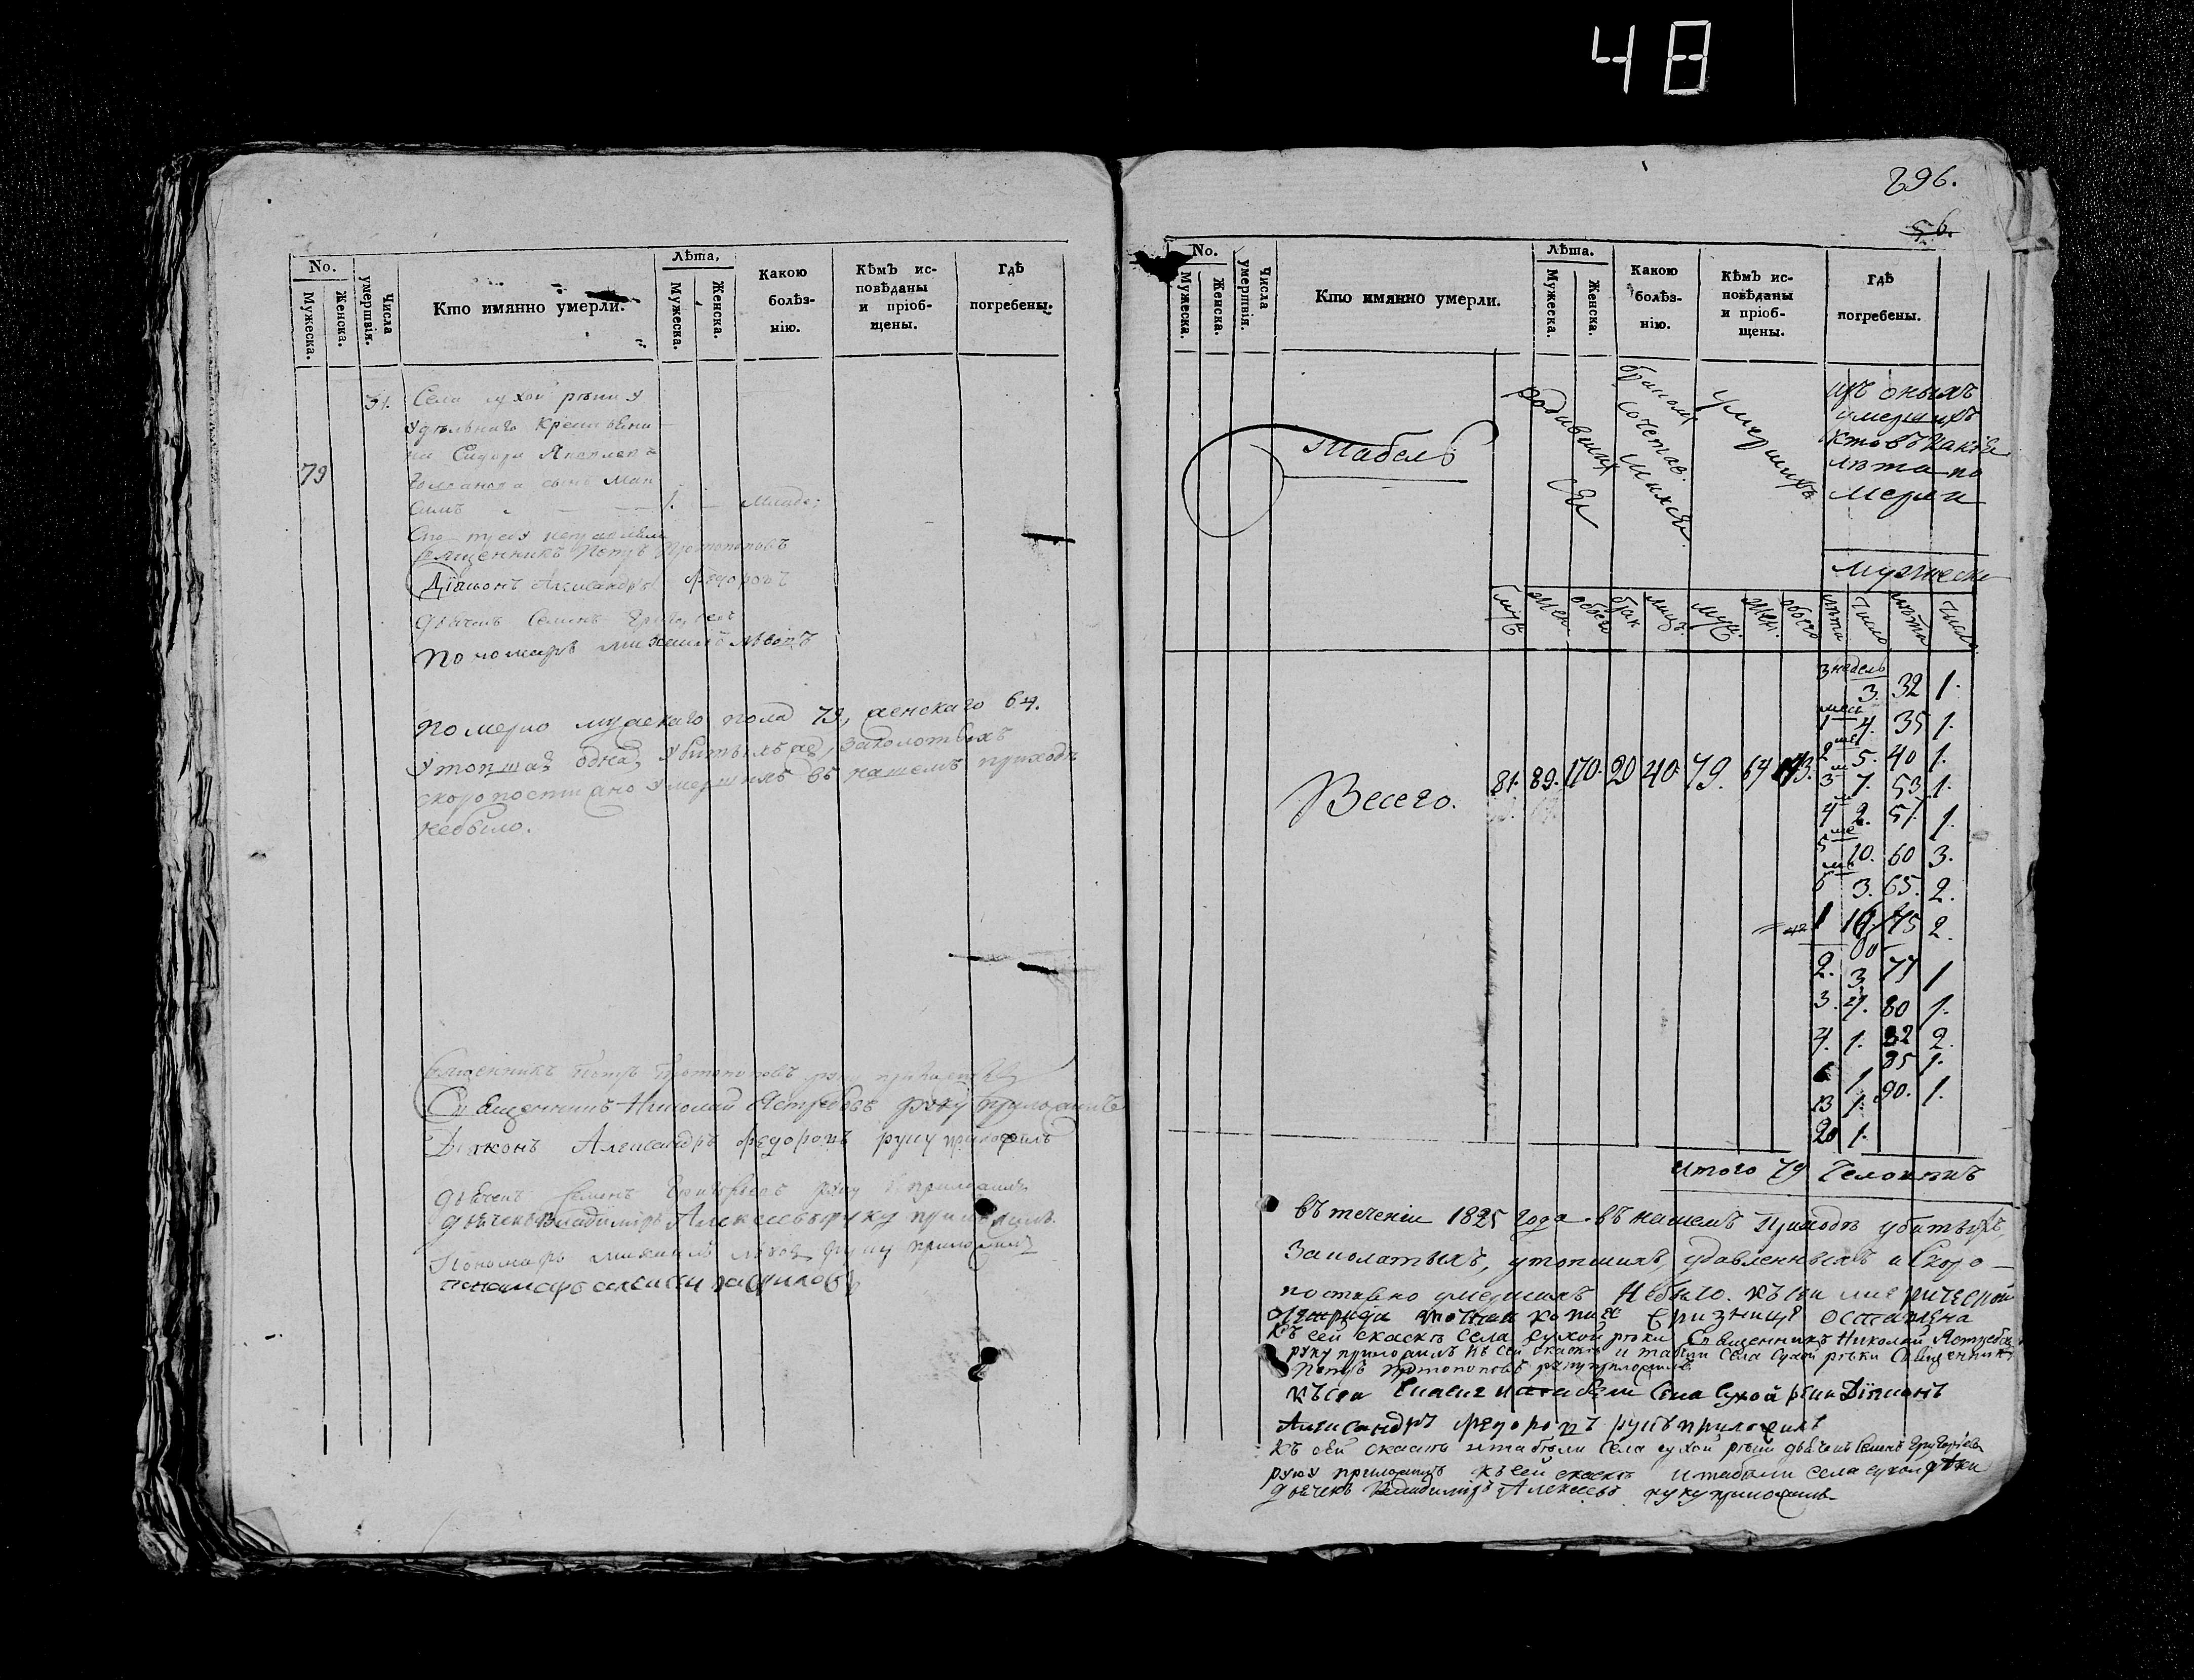 48
No.
Мужеска.
Женска.
Числа умертвія.
Кто имянно умерли.
Лѣта,
Мужеска.
Женска.
Какою болѣз-
нію.
Кѣмъ ис-
повѣданы
и пріоб-
щены.
Гдѣ
погребены.
31. Села сухой рѣки У
удѣльнаго крестьяни
на Сидора Яковлева
79
сынъ Мак
симъ 1. Младе;
Священникъ Петръ Протопоповъ
Діяконъ Александръ Федоровъ
Дьячекъ Семенъ Григорьевъ
Пономарь михаилъ львовъ
Померло мужескаго пола 79, женскаго 64.
Утопшая одна, убитыхъ же, заколотыхъ
скоропостижно умершихъ въ нашемъ приходѣ
небыло.
Священникъ Петръ Протопоповъ руку приложилъ
Священникъ Николай Ястребовъ руку приложилъ
Діяконъ Александръ Федоровъ руку приложилъ
Дьячекъ Семенъ Григорьевъ руку приложилъ
дьячекъ Владимиръ Алексеевъ руку приложилъ.
Пономарь михаилъ львовъ руку приложилъ
понамарь алексей
296.
56.
No.
Мужеска.
Женска.
Числа умертвія.
Кто имянно умерли.
Лѣта.
Мужеска.
Женска.
Какою
болѣз-
нію.
Кѣмъ ис-
повѣданы
и пріоб-
щены.
Гдѣ
погребены.
Табель
родившихся
бракомъ сочетавшихся
умершихъ
изъ оныхъ
умершихъ
кто въ какіе
лѣта по
мерли
мужеска
муж жен обоего брак лицъ муж. жен. обоего лѣта число лѣта число
3 недель
3. 32 1.
1 4. 35 1.
2 5. 40 1.
Всего. 81. 89. 170. 20 40. 79. 64 143. 3 7. 53 1.
4 2. 57 1.
5 10. 60 3.
6 3. 65. 2.
1 75 2.
2. 3 77 1
3. 80 1.
4. 1. 82 2.
85 1.
6 1. 90. 1.
13 1.
20 1.
Итого 79 Человѣкъ
въ теченіи 1825 года въ нашемъ приходѣ убитыхъ,
заколотыхъ, утопшихъ, удавленныхъ и скоро-
постижно умершихъ небыло. къ сей метрической
тетради точная копия в ризнице оставлена
къ сей скаске села сухой рѣки Священникъ Николай Ястребовъ
руку приложилъ къ сей скаске и табели села сухой рѣки Священникъ
Петръ Протопоповъ руку приложилъ
къ сей скаске и табели села сухой реки Діяконъ
Александръ Федоровъ руку приложилъ
къ сей скаске и табели села сухой рѣки дьячекъ Семенъ Григорьевъ
руку приложилъ къ сей скаске и табели села сухой рѣки
дьячекъ Владимиръ Алексеевъ руку приложилъ